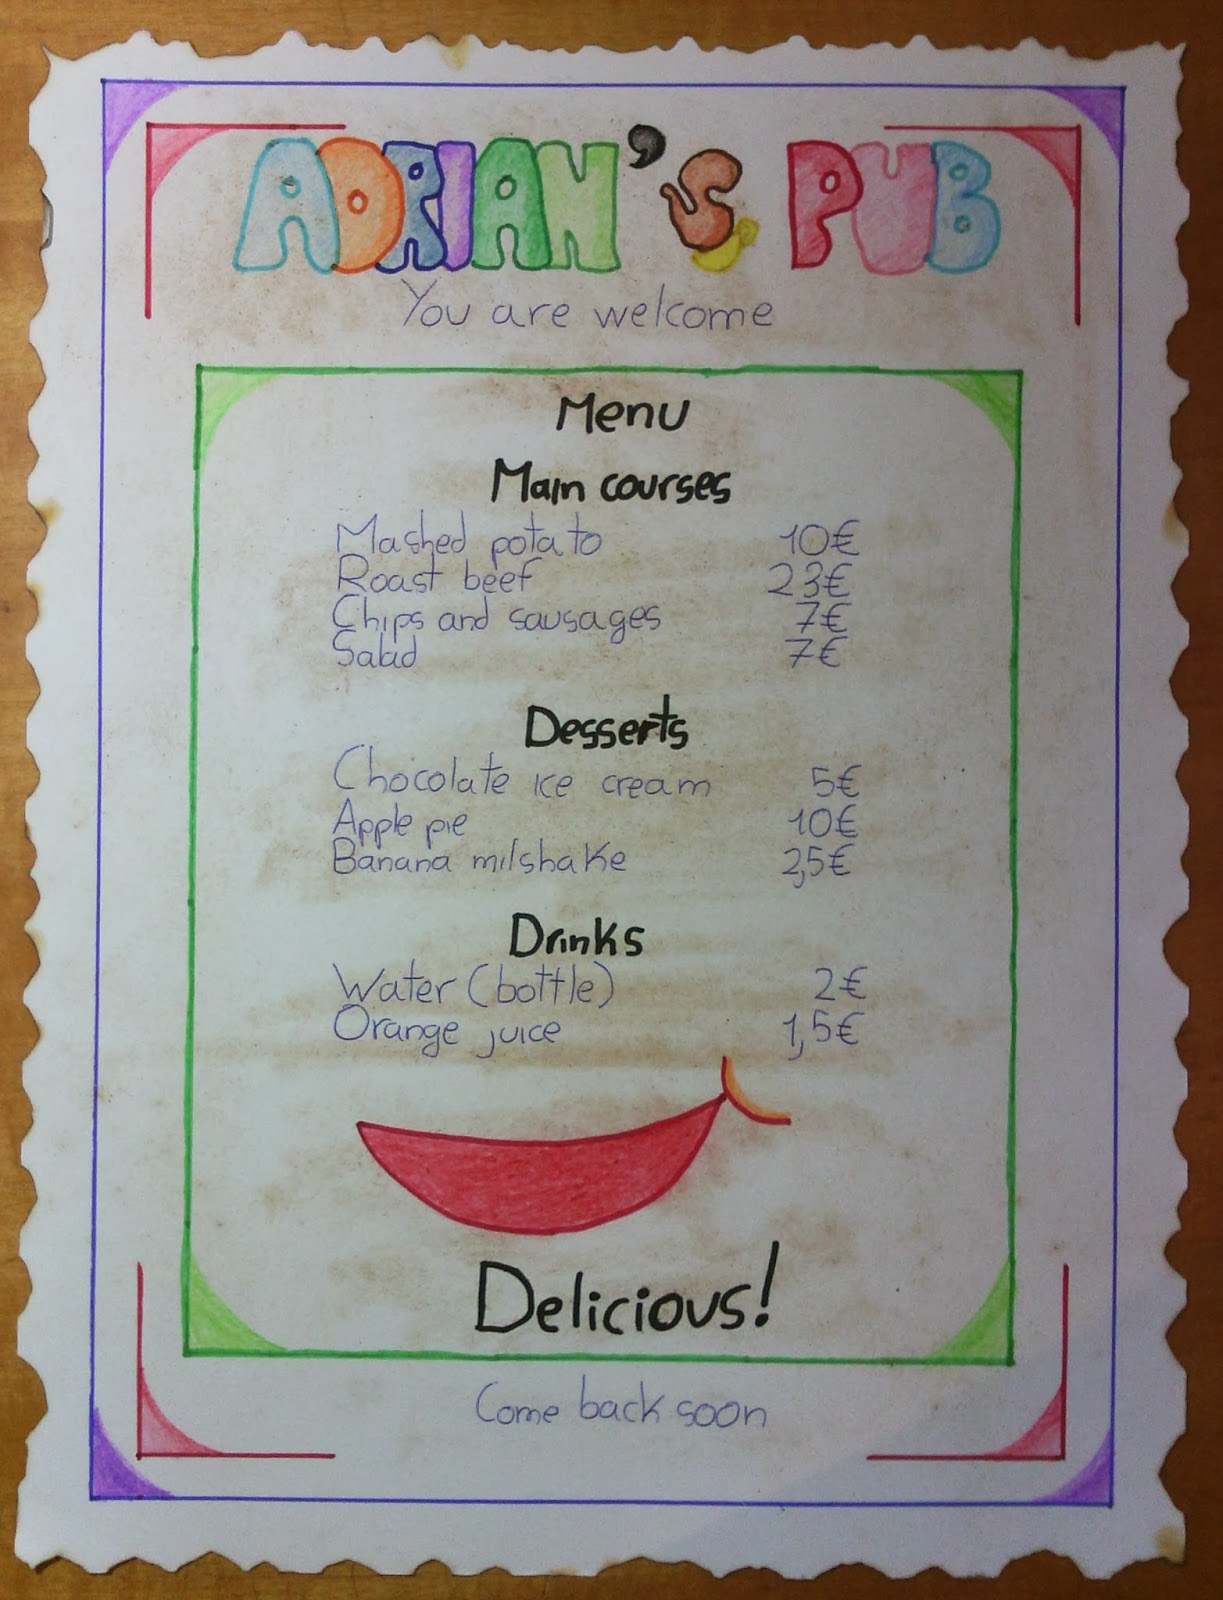 ADRIAN'S PUB
You are welcome
Menu
Main courses
Mashed potato 10€
Roast beef 23€
Chips and sausages 7€
Salad 7€
Desserts
Chocolate ice cream 5€
Apple pie 10€
Banana milshake 2,5€
Drinks
Water (bottle) 2€
Orange juice 1,5€
Delicious!
Come back soon